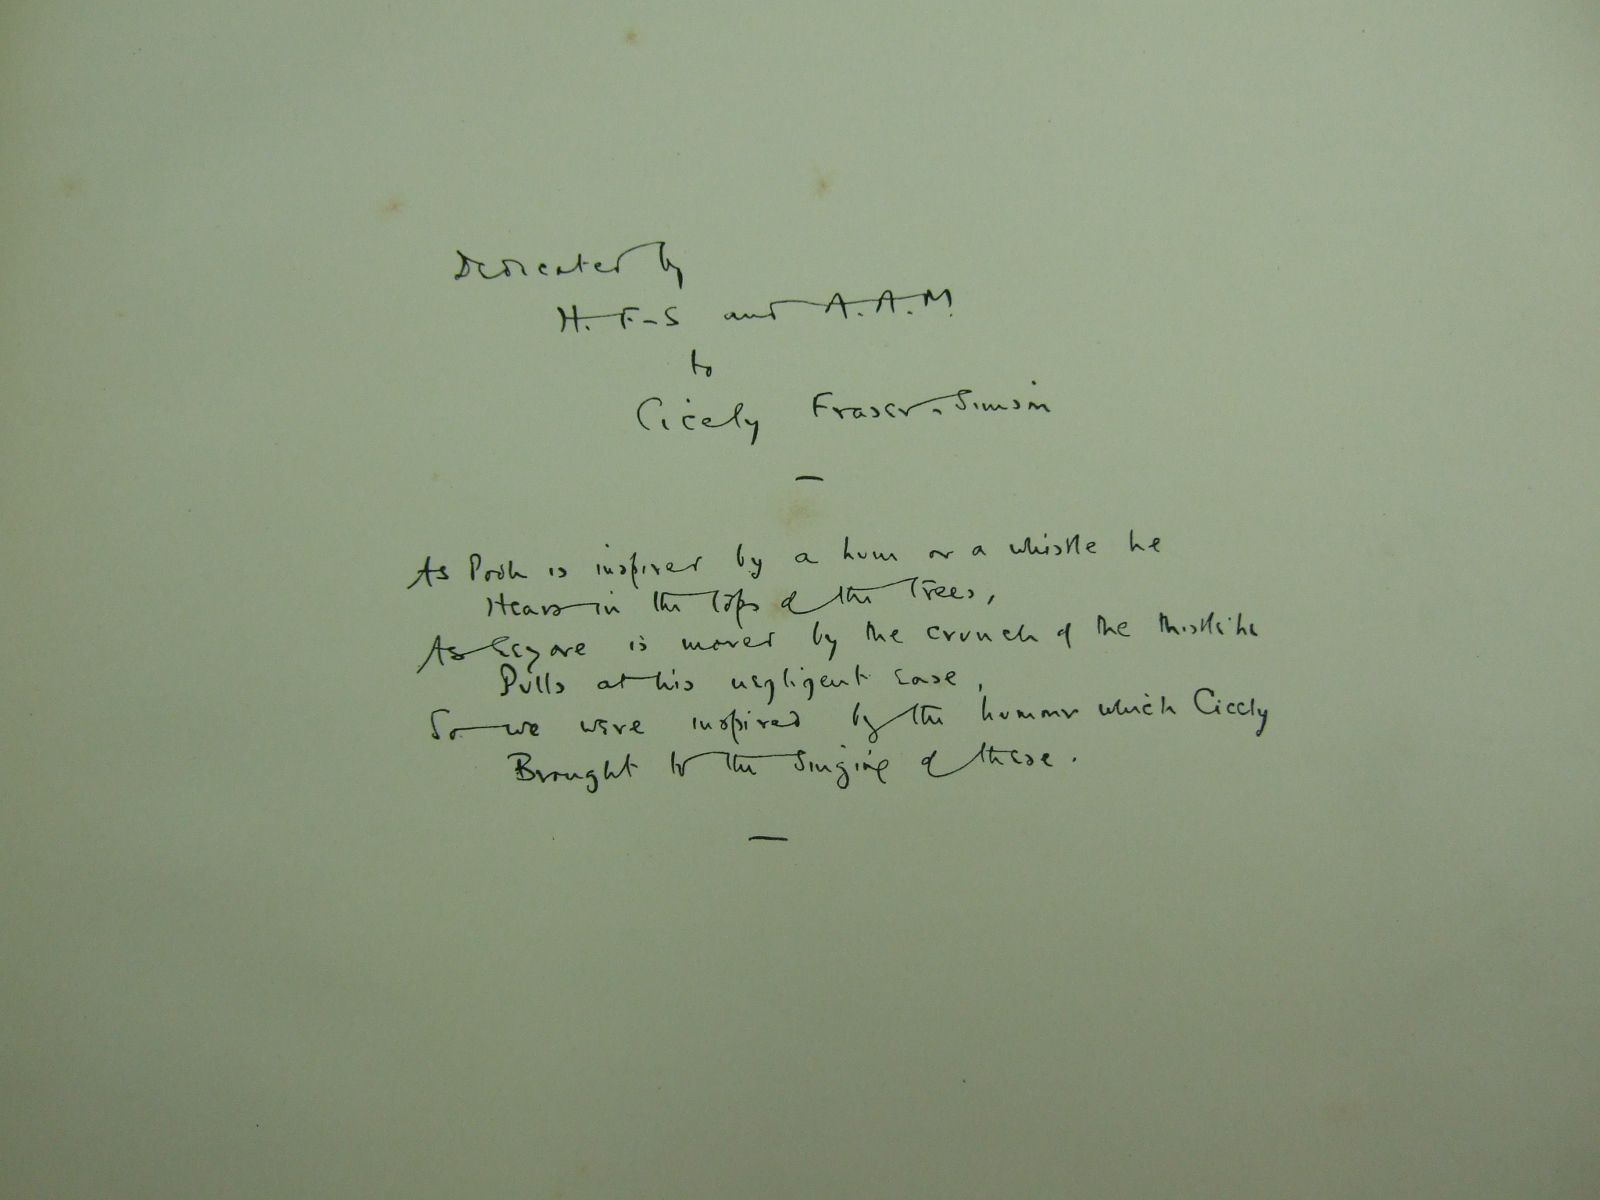 Dedicated by
H. F-S and A.A.M.
to
Cicely Fraser-Simson
—
As Pooh is inspired by a hum or a whistle he
Hears in the tops of the trees,
As Eeyore is moved by the crunch of the thistle he
Pulls at his negligent ease,
So we were inspired by the humour which Cicely
Brought to the singing of these.
—